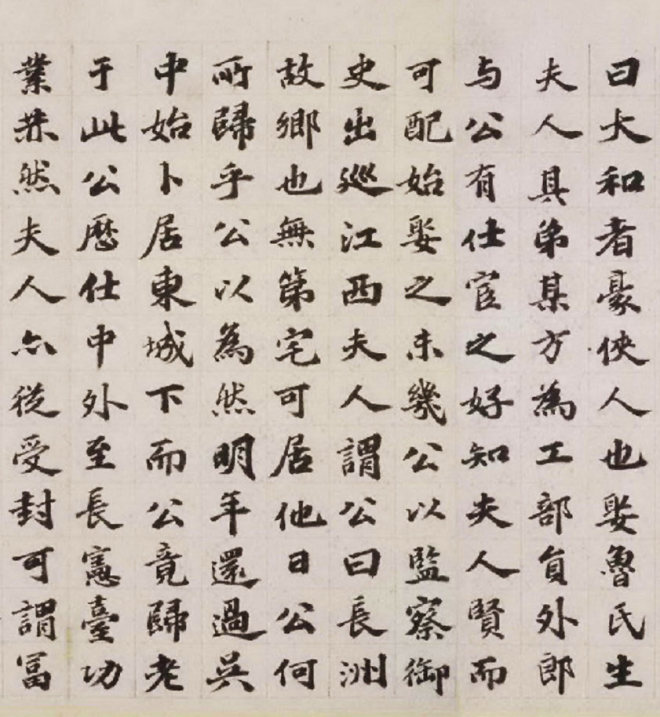 曰大和者豪俠人也娶魯民生
夫人具弟某方為工部員外郎
与公有仕宦之好知夫人賢而
可配始娶之未幾公以監察御
史出巡江西夫人謂公曰長洲
故鄉也無第宅可居他日公何
所歸乎公以為然明年還過吳
中始卜居東城下而公竟歸老
于此公歷仕中外至長憲臺功
業赫然夫人亦從受封可謂富